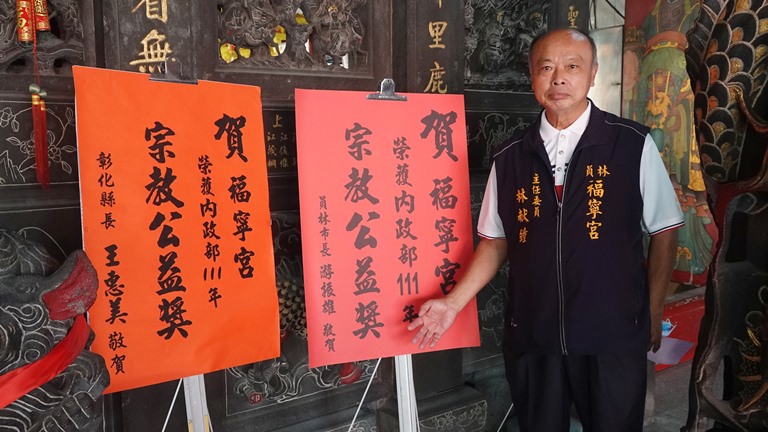 看無
千里鹿
賀 福寧宮
榮獲內政部111年
宗教公益獎
彰化縣長 王惠美 敬賀
賀 福寧宮
榮獲內政部111年
宗教公益獎
員林市長 游振雄 敬賀
員林
福寧宮
主任委員
林献鐘